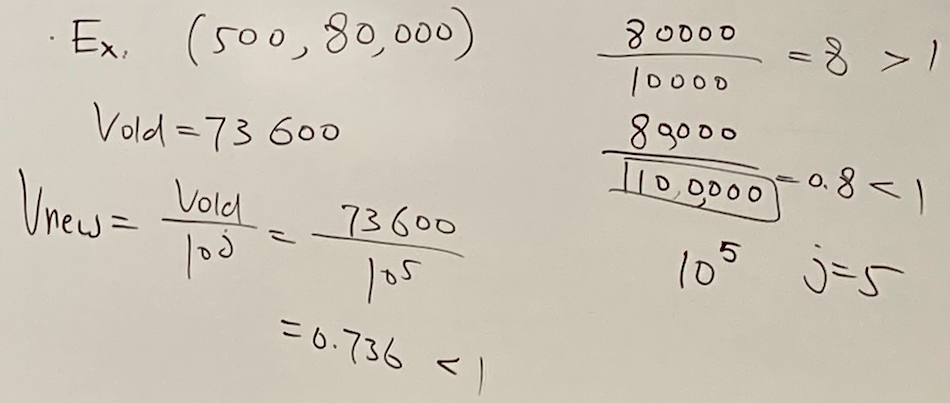 · Ex. (500, 80,000)
Vold = 73 600
Vnew = Vold / 10^j = 73600 / 10^5
= 0.736 < 1
80000 / 10000 = 8 > 1
80,000 / 110,0000 = 0.8 < 1
10^5 j=5